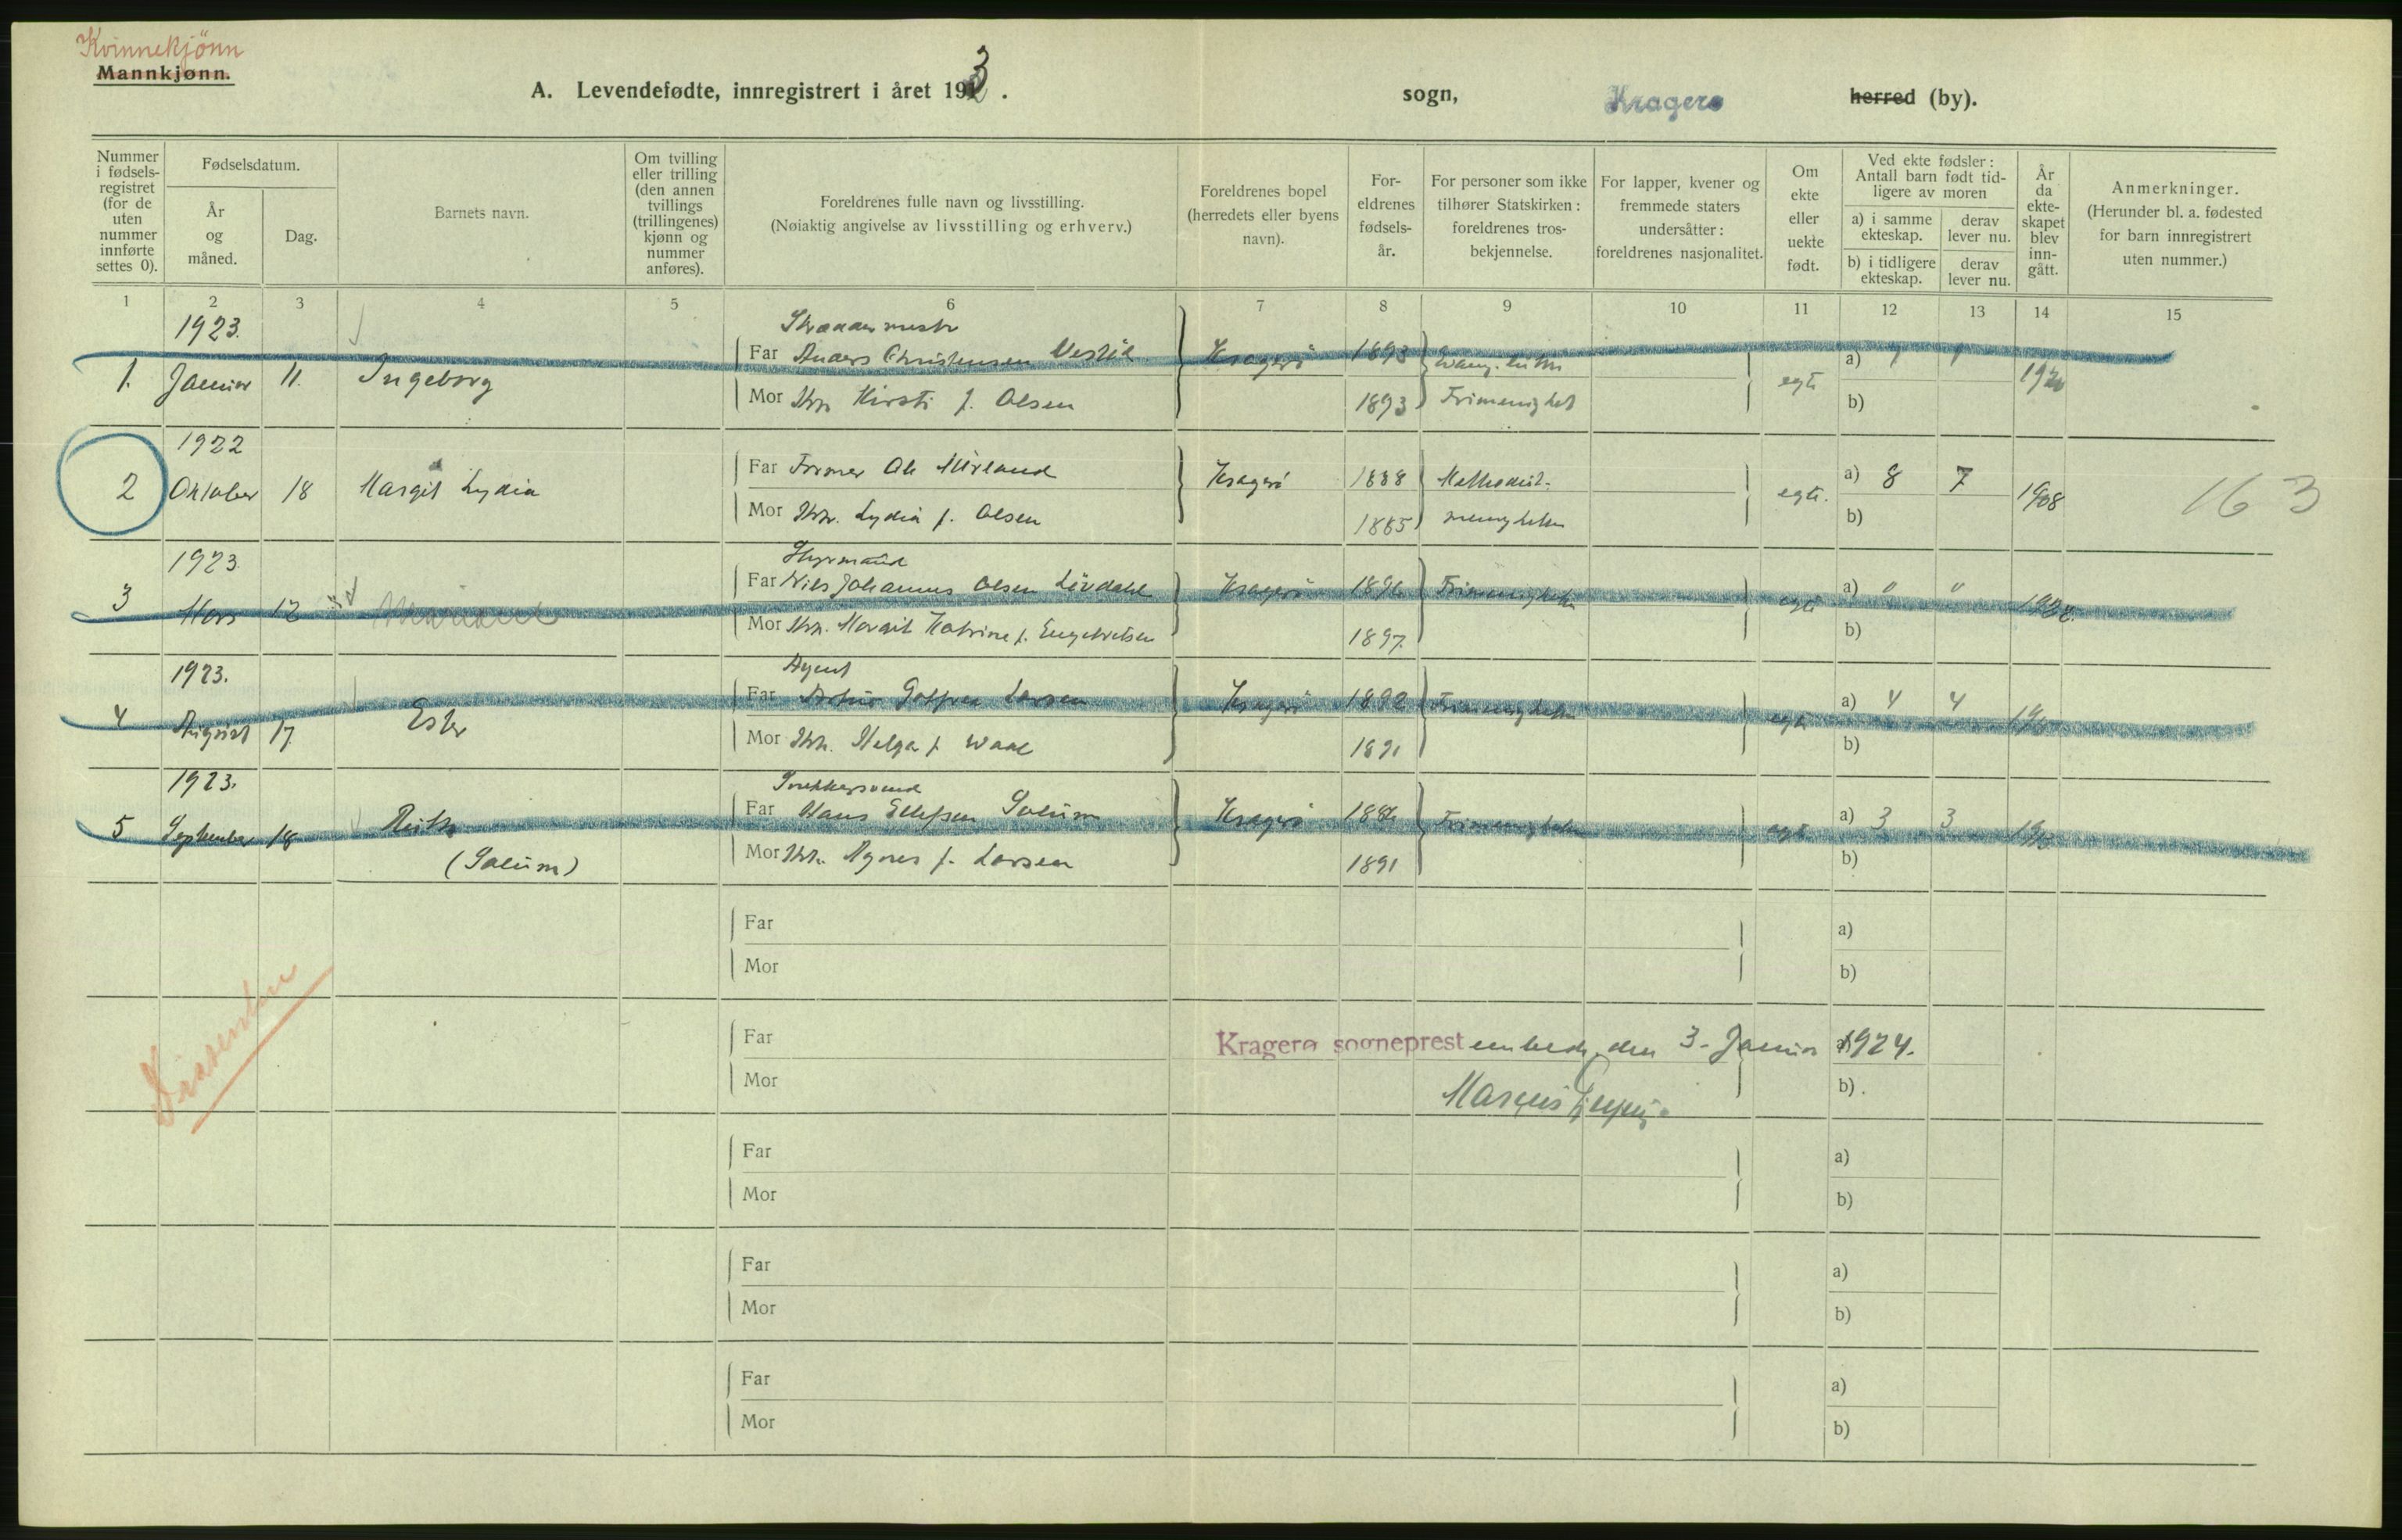 Kvinnekjönn
Mannkjønn.
A. Levendefødte, innregistrert i året 1923.
sogn, Kragerø herred (by).
Nummer i fødsels-registret (for de uten nummer innførte settes 0).
Fødselsdatum.
År og måned.
Dag.
Barnets navn.
Om tvilling eller trilling (den annen tvillings (trillingenes) kjønn og nummer anføres).
Foreldrenes fulle navn og livsstilling.
(Nøiaktig angivelse av livsstilling og erhverv.)
Foreldrenes bopel (herredets eller byens navn).
For-eldrenes fødsels-år.
For personer som ikke tilhører Statskirken: foreldrenes tros-bekjennelse.
For lapper, kvener og fremmede staters undersåtter: foreldrenes nasjonalitet.
Om ekte eller uekte født.
Ved ekte fødsler: Antall barn født tid-ligere av moren
a) i samme ekteskap.
derav lever nu.
b) i tidligere ekteskap.
derav lever nu.
År da ekte-skapet blev inn-gått.
Anmerkninger.
(Herunder bl. a. fødested for barn innregistrert uten nummer.)
1 2 3 4 5 6 7 8 9 10 11 12 13 14 15
1923.
1. Januar 11. Ingeborg
Far Anders Christensen Kragerö 1893 egte a) 1 1
Mor Kirsti f. Olsen 1893 Frimenighet b)
1922
2 Oktober 18 Margit Lydia
Far Former Ole Kragerö 1888 Methodist- egte. a) 8 7 1908 163
Mor Hr. Lydia f. Olsen 1885 menigheten b)
1923
Styrmand
3 Mars 12
Far Nils Johannes Olsen Lövdahl Kragerö Frimenigheten egte a) " "
Mor Margit Katrine f. 1897. b)
1923.
Agent
4 August 17. Ester
Far Larsen Kragerö 1892 Frimenigheten egte a) 4 4
Mor Helga f. Waal 1891 b)
1923.
5 September 18 Ruth
Far Hans Ellefsen Solum Kragerö Frimenigheten egte a) 3 3
(Solum)
Mor Agnes f. Larsen 1891 b)
Far a)
Mor b)
Far a)
Kragerø sogneprestembede, den 3. Januar 1924.
Mor b)
Marius
Dissentere
Far a)
Mor b)
Far a)
Mor b)
Far a)
Mor b)